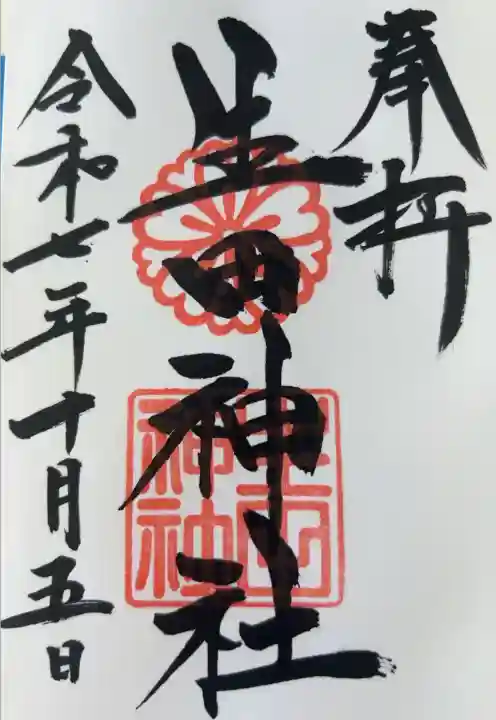 奉拝
生田神社
生田神社
令和七年十月五日